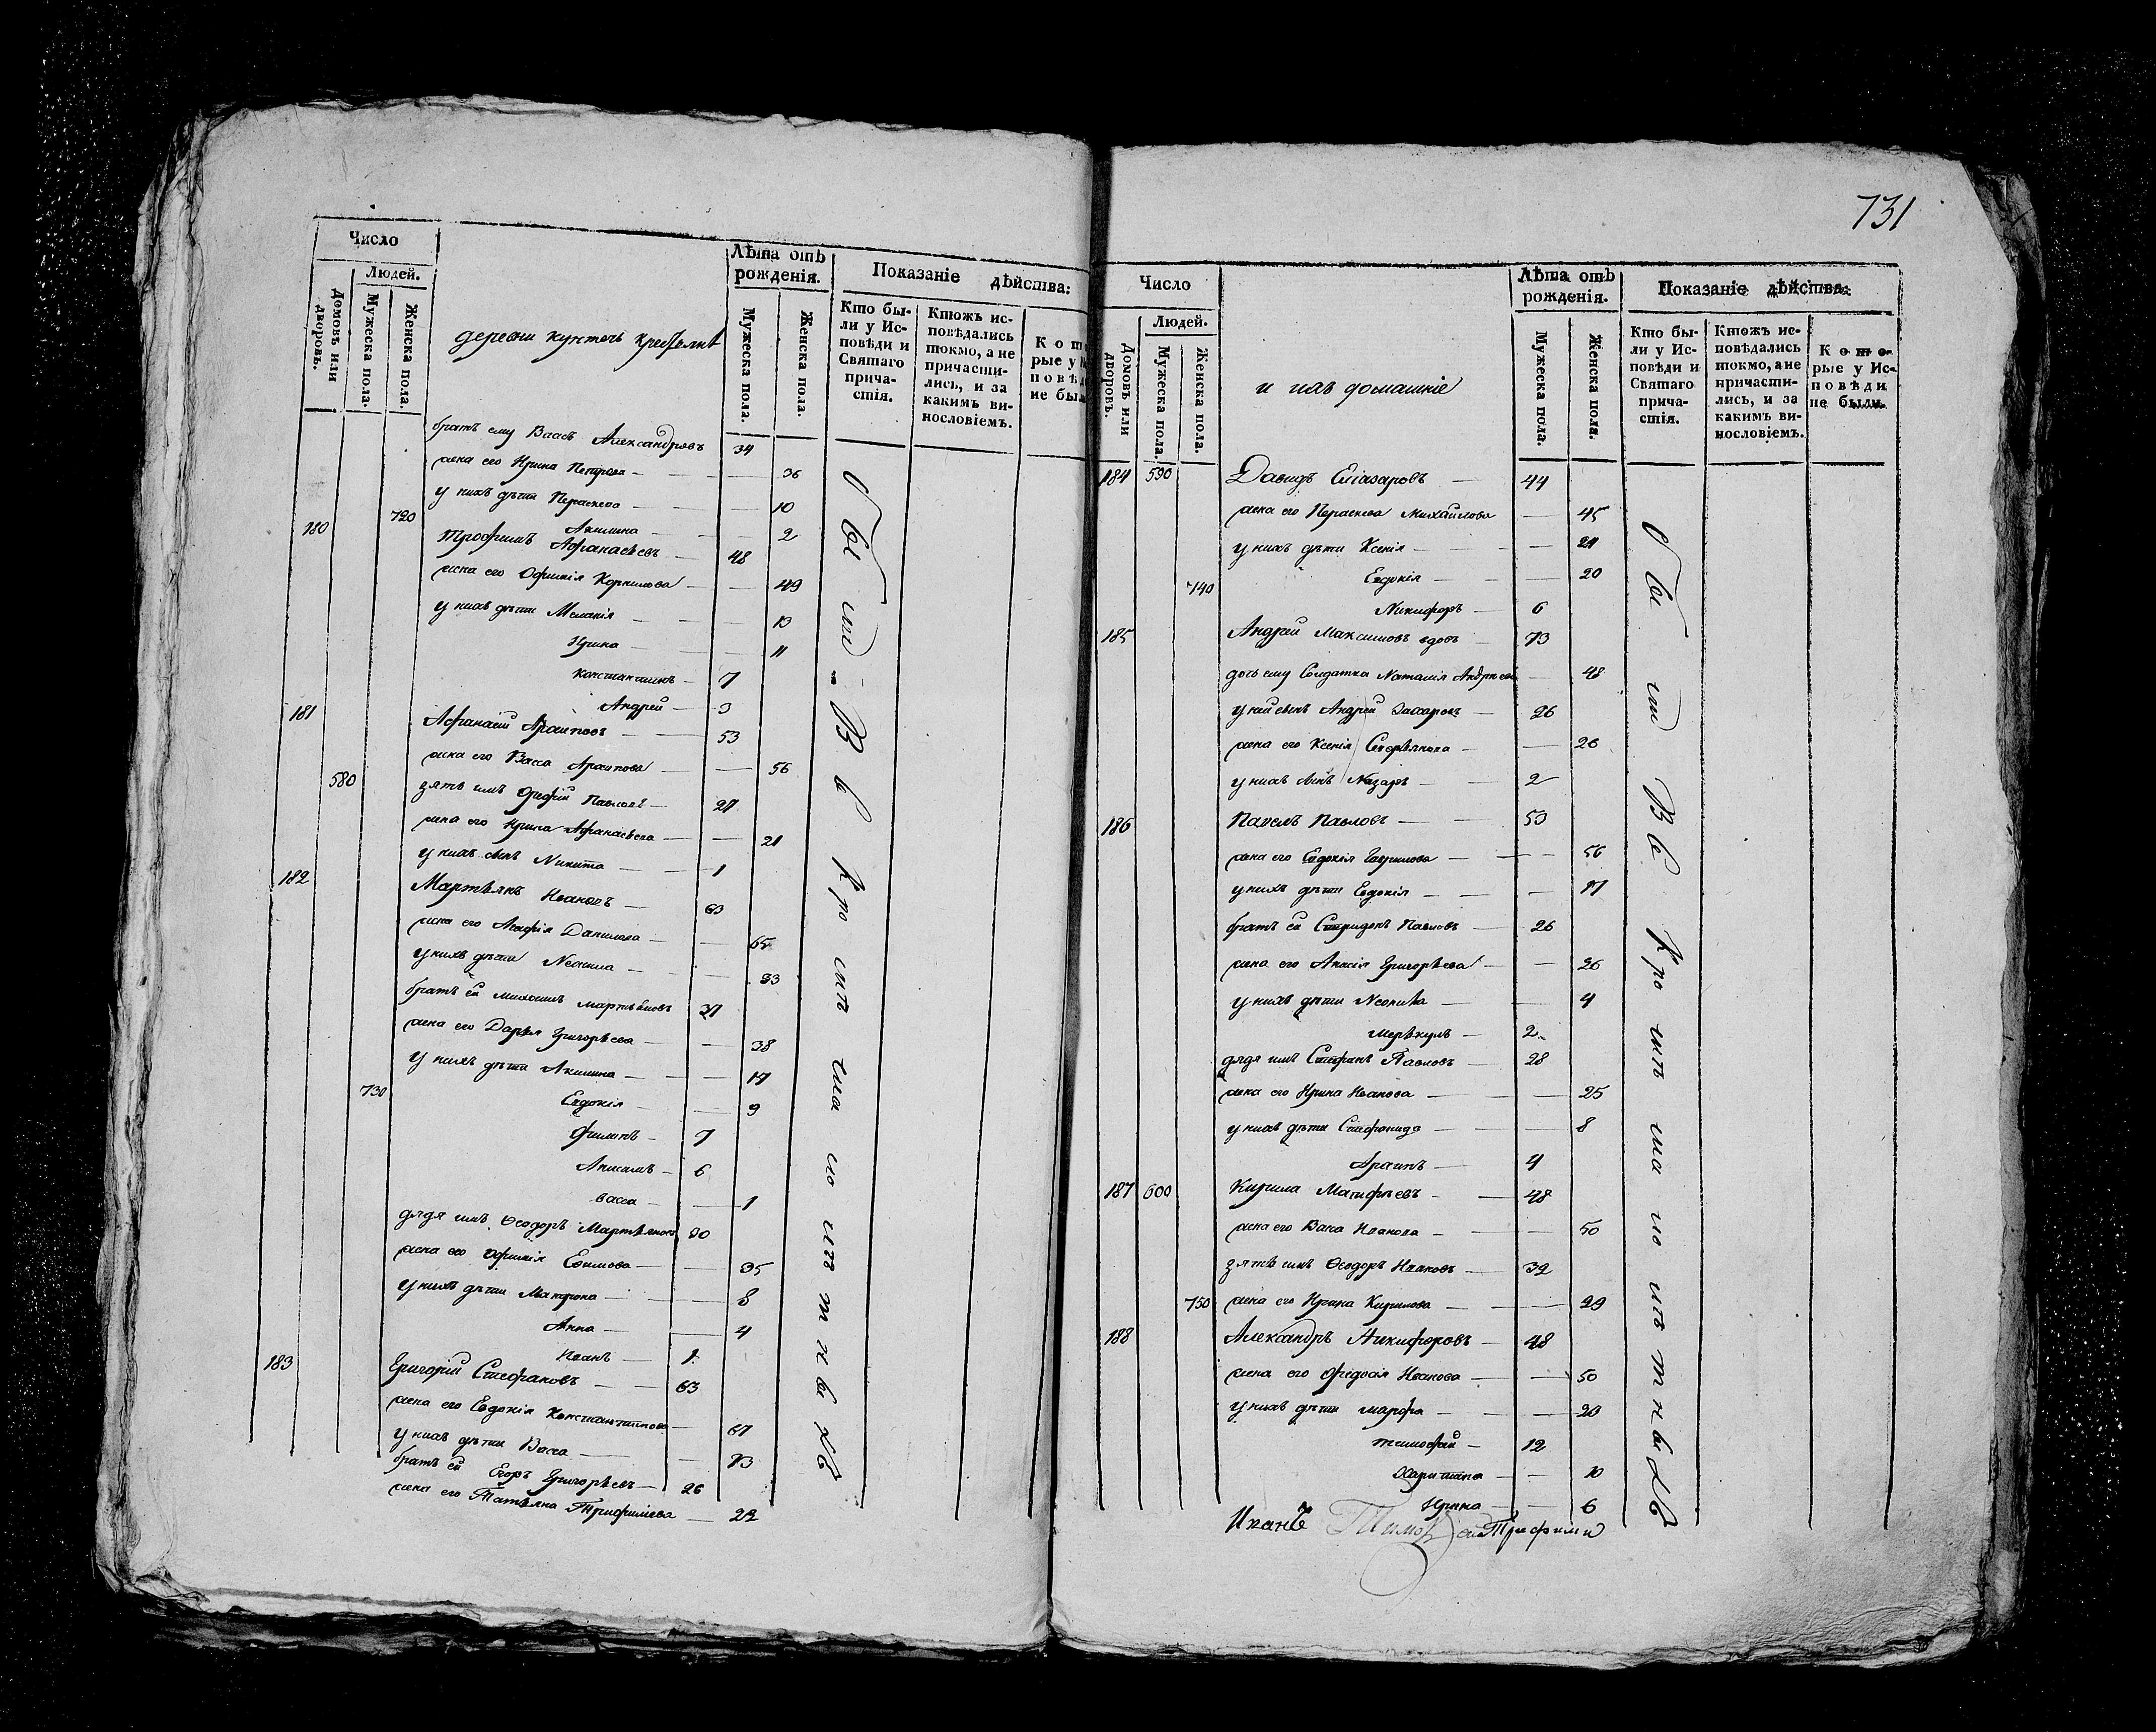 731
Число
Людей.
Домовъ или дворовъ.
Мужеска пола.
Женска пола.
деревни
Лѣта отъ рожденія.
Мужеска пола.
Женска пола.
Показаніе дѣйства:
Кто были у Исповѣди и Святаго причастія.
Ктожъ исповѣдались токмо, а не причастились, и за какимъ винословіемъ.
Которые у
братъ ему Александровъ 34
жена его Ирина Петрова 36
720 у нихъ дѣти Параскева 10
Акилина 2
180 Трофимъ Афанасьевъ 48
жена его Офимія Корнилова 49
у нихъ дѣти Меланія 13
Ирина 11
Константинъ 7
Андрей 3
181 Афанасій Архиповъ 53
жена его Васса Архипова 56
580 зять имъ Павловъ 27
жена его Ирина Афанасьева 21
у нихъ сынъ Никита 1
182 Мартьянъ Ивановъ 63
жена его Данилова 65
у нихъ дѣти Неонила 33
братъ ей Мартьяновъ 37
жена его Дарья Григорьева 38
у нихъ дѣти Акилина 17
730 Евдокія 9
Филипъ 7
Анисимъ 6
Васса 1
дядя имъ Ѳеодоръ Мартьяновъ 30
жена его Офимія Ефимова 35
у нихъ дѣти Макрона 8
Анна 4
Иванъ 1
183 Григорій Стефановъ 63
жена его Евдокія Константинова 67
у нихъ дѣти Васса 13
братъ ей Егоръ Григорьевъ 26
жена его Татьяна 22
Число
Людей.
Домовъ или дворовъ.
Мужеска пола.
Женска пола.
и ихъ домашніе
Лѣта отъ рожденія.
Мужеска пола.
Женска пола.
Показаніе дѣйства:
Кто были у Исповѣди и Святаго причастія.
Ктожъ исповѣдались токмо, а не причастились, и за какимъ винословіемъ.
Которые у Исповѣди не были.
184 590 Давидъ Еліазаровъ 44
жена его Параскева Михайлова 45
у нихъ дѣти Ксенія 21
740 Евдокія 20
Никифоръ 6
185 Андрей Максимовъ вдовъ 73
дочь ему Солдатка Наталія Андреева 48
у ней сынъ Андрей Захаровъ 26
жена его Ксенія 26
у нихъ сынъ Назаръ 2
186 Павелъ Павловъ 53
жена его Евдокія Гаврилова 56
у нихъ дѣти Евдокія 17
братъ ей Спиридонъ Павловъ 26
жена его Григорьева 26
у нихъ дѣти Неонила 4
Меркулъ 2
дядя имъ Стефанъ Павловъ 28
жена его Ирина Иванова 25
у нихъ дѣти Стефанида 8
Архипъ 4
187 600 Кирила 48
жена его Васса Иванова 50
зять имъ Ѳеодоръ Ивановъ 32
750 жена его Ирина Кирилова 29
188 Александръ Никифоровъ 48
жена его Иванова 50
у нихъ дѣти Марфа 20
Тимофей 12
Харитина 10
Ирина 6